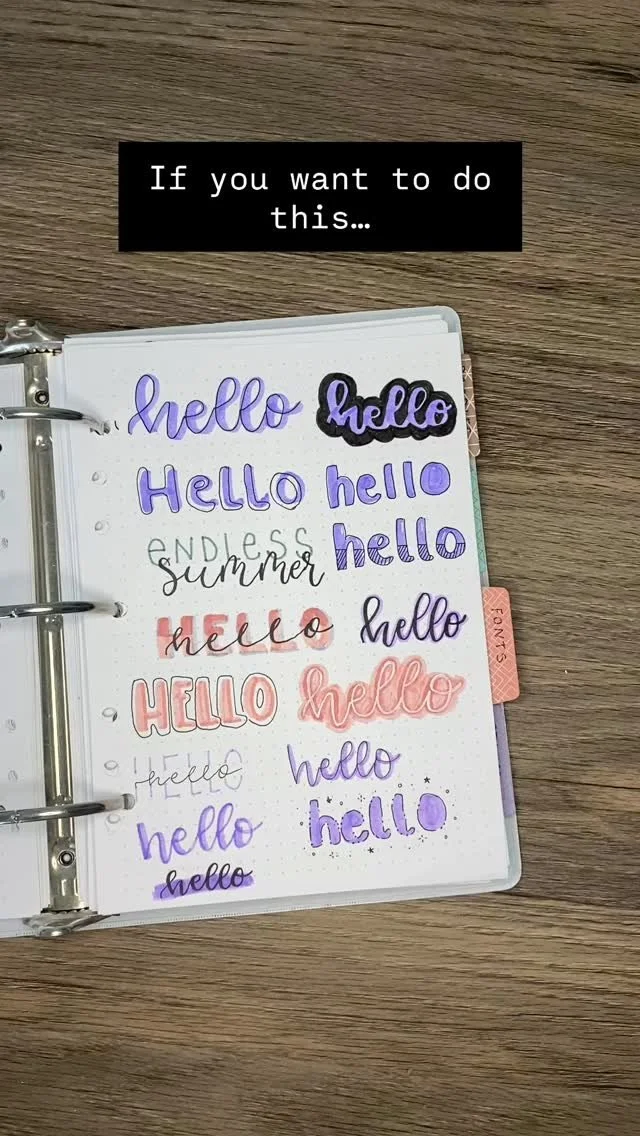 If you want to do
this…
hello hello
Hello hello
ENDLESS
summer hello
HELLO
hello hello
HELLO hello
FONTS
HELLO
hello hello
hello hello
hello